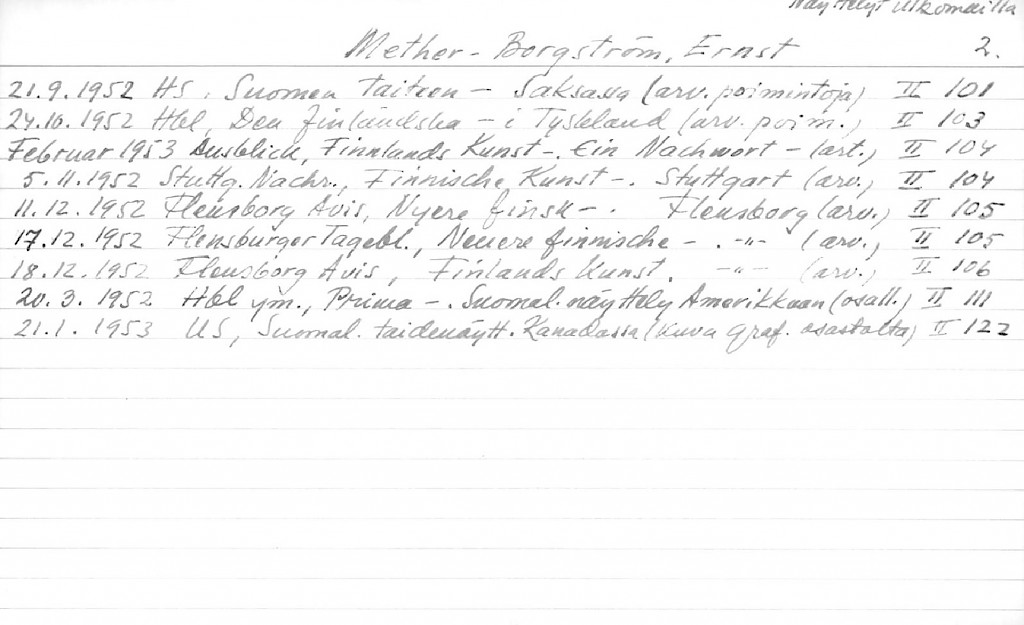 Näyttelyt ulkomailla
Mether-Borgström, Ernst 2.
21.9.1952 HS, Suomen taiteen - Saksassa (arv. poimintoja) II 101
24.10.1952 Hbl, Den finländska - i Tyskland (arv. poim.) II 103
Februar 1953 Ausblick, Finnlands Kunst -. Ein Nachwort - (art.) II 104
5.11.1952 Stuttg. Nachr., Finnische Kunst -. Stuttgart (arv.) II 104
11.12.1952 Flensborg Avis, Nyere finsk - . Flensborg (arv.) II 105
17.12.1952 Flensburger Tagebl., Neuere finnische - . -"- (arv.) II 105
18.12.1952 Flensborg Avis, Finlands Kunst. -"- (arv.) II 106
20.3.1952 Hbl ym., Prima -. Suomal. näyttely Amerikkaan (osall.) II 111
21.1.1953 US, Suomal. taidenäytt. Kanadassa (kuva graf. osastolta) II 122